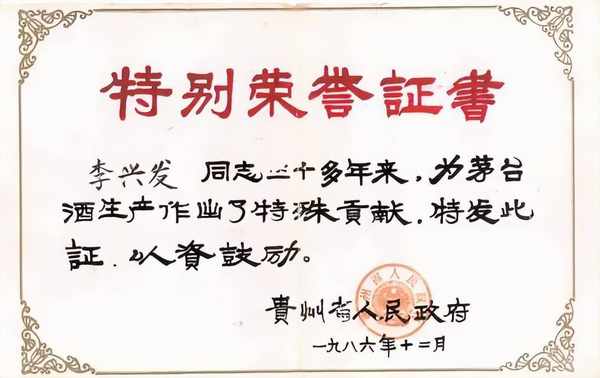 特别荣誉証書
李兴发 同志三十多年来，为茅台
酒生产作出了特殊貢献，特发此
証，以资鼓励。
貴州省人民政府
一九八六年十二月